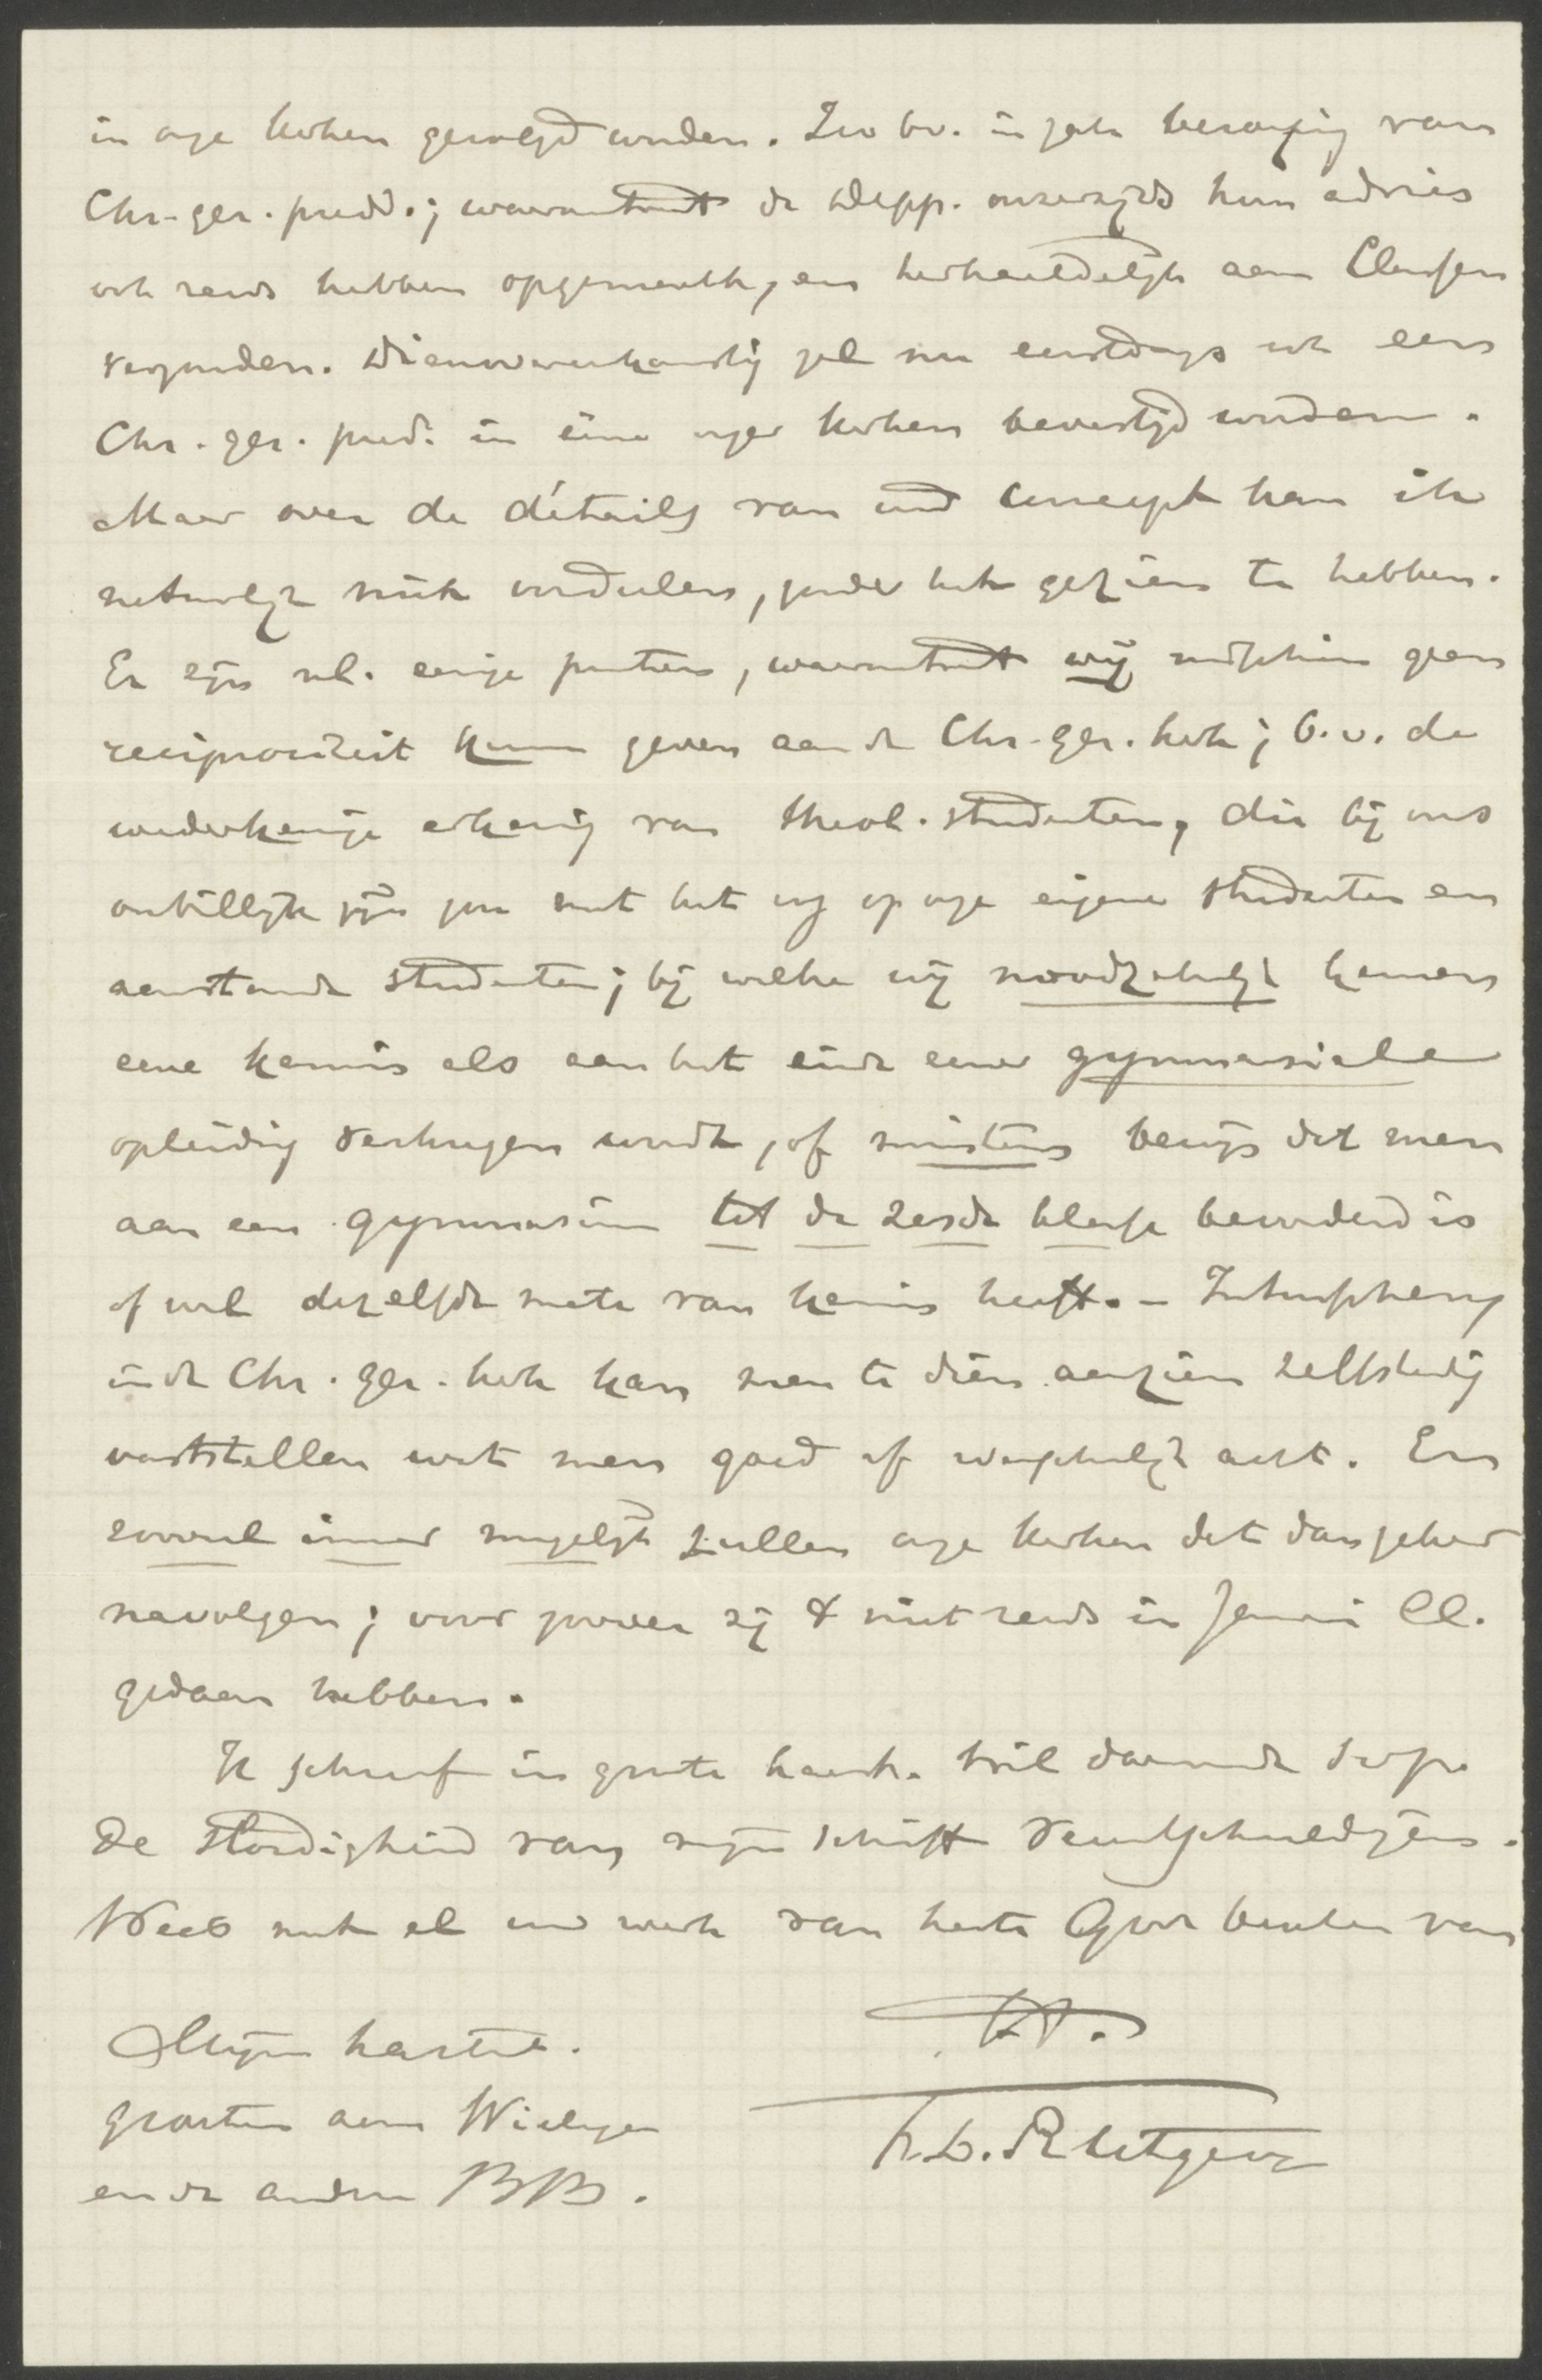 in onze kerken gevolgd worden. Zoo bv. in zake beroeping van
Chr. ger. predd.; waaromtrent de depp. onzerzijds hun advies
ook reeds hebben opgemaakt, en herhaaldelijk aan Classen
verzonden. Dienovereenkomstig zal nu eerstdaags ook een
Chr. ger. pred. in eene onzer kerken bevestigd worden.
Maar over de détails van uw concept kan ik
natuurlijk niet oordeelen, zonder het gezien te hebben.
Er zijn nl. eenige punten, waaromtrent wij misschien geen
reciprociteit kunnen geven aan de Chr. ger. kerk; b.v. de
wederkeerige erkenning van theol. studenten, die bij ons
onbillijk zijn zou met het oog op onze eigene studenten en
aanstaande studenten; bij welke wij noodzakelijk keuren
eene kennis als aan het einde eener gymnasiale
opleiding verkregen wordt, of minstens bewijs dat men
aan een gymnasium tot de zesde klasse bevorderd is
of wel dezelfde mate van kennis heeft. – Intusschen
in de Chr. ger. kerk kan men te dien aanzien zelfstandig
vaststellen wat men goed of wenschelijk acht. En
zooveel immer mogelijk zullen onze kerken dat dan zeker
navolgen; voor zoover zij 't niet reeds in Januari ll.
gedaan hebben.
Ik schreef in groote haast. Wil daarmede
de slordigheid van mijn schrift verontschuldigen.
Wees met al uw werk van harte Gode bevolen van
Mijne hartel.
groeten aan Wielenga
en de andere BB.
tt.
F.L. Rutgers